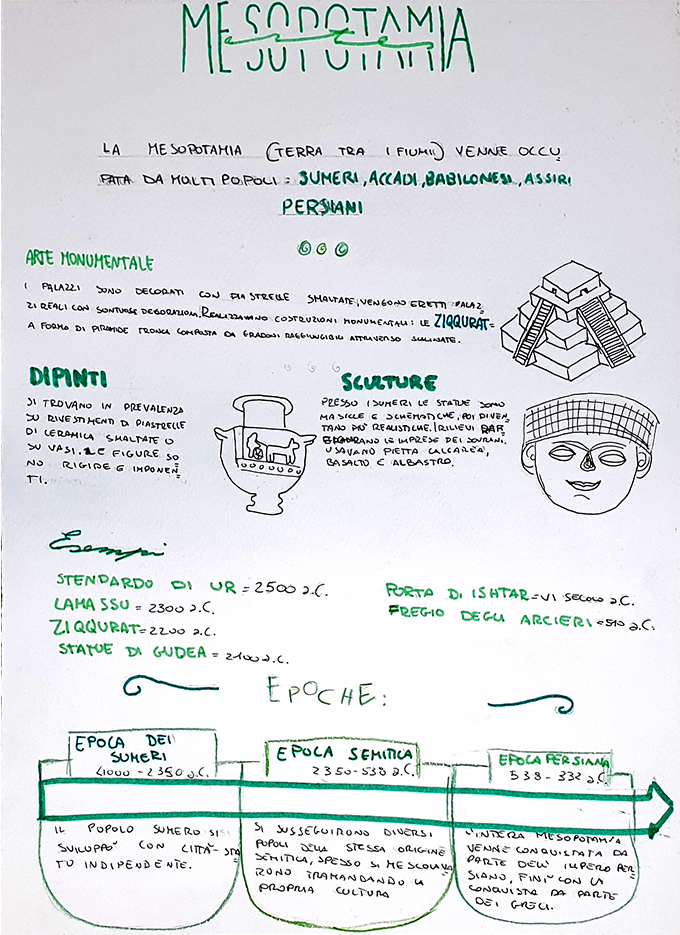 MESOPOTAMIA
arte
LA MESOPOTAMIA (TERRA TRA I FIUMI) VENNE OCCU
PATA DA MOLTI POPOLI: SUMERI, ACCADI, BABILONESI, ASSIRI
PERSIANI
ARTE MONUMENTALE
I PALAZZI SONO DECORATI CON PIASTRELLE SMALTATE, VENGONO ERETTI PALAZ-
ZI REALI CON SONTUOSE DECORAZIONI. REALIZZAVANO COSTRUZIONI MONUMENTALI: LE ZIQQURAT=
A FORMA DI PIRAMIDE TRONCA COMPOSTA DA GRADONI RAGGIUNGIBILI ATTRAVERSO SCALINATE.
DIPINTI
SI TROVANO IN PREVALENZA
SU RIVESTIMENTI DI PIASTRELLE
DI CERAMICA SMALTATE O
SU VASI. LE FIGURE SO
NO RIGIDE E IMPONEN=
TI.
SCULTURE
PRESSO I SUMERI LE STATUE SONO
MASICCE E SCHEMATICHE, POI DIVEN=
TANO PIÙ REALISTICHE. I RILIEVI RAF
FIGURANO LE IMPRESE DEI SOVRANI.
USAVANO PIETRA CALCAREA,
BASALTO E ALBASTRO.
Esempi
STENDARDO DI UR = 2500 a.C.
LAMASSU = 2300 a.C.
ZIQQURAT = 2200 a.C.
STATUE DI GUDEA = 2100 a.C.
PORTA DI ISHTAR = VI SECOLO a.C.
FREGIO DEGLI ARCIERI = 510 a.C.
EPOCHE:
EPOCA DEI
SUMERI
4000 - 2350 a.C.
IL POPOLO SUMERO SI
SVILUPPÒ CON CITTÀ-STA
TO INDIPENDENTE.
EPOCA SEMITICA
2350-538 a.C.
SI SUSSEGUIRONO DIVERSI
POPOLI DELLA STESSA ORIGINE
SEMITICA, SPESSO SI MESCOLA
RONO TRAMANDANDO LA
PROPRIA CULTURA
EPOCA PERSIANA
538 - 332 a.C.
L'INTERA MESOPOTAMIA
VENNE CONQUISTATA DA
PARTE DELL'IMPERO PER
SIANO, FINÌ CON LA
CONQUISTA DA PARTE
DEI GRECI.